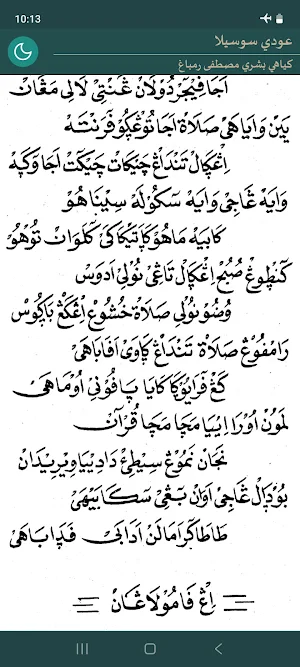 10:13
عودي سوسيلا
كياهي بشري مصطفى رمباغ
اجا فيجر دولان غنتي لالي مغان
يين واياهى صلاة اجا توغكو فرنته
اغكال تنداغ چيكات چيكت اجا وكيه
وايه غاجى وايه سكوله سيناهو
كابيه ماهو كاتيكاكى كلوان توهو
كنطوغ صبح اغكال تاغى نولى ادوس
وضوء نولى صلاة خشوع اغكغ باكوس
رامفوغ صلاة تنداغ كاوى افا باهى
كغ فرايوكا كايا پافونى اوماهى
لمون اورا اييا ماچا ماچا قرآن
نجان نموغ سيطيئ داديا ويريدان
بودال غاجى اوان بغى سكابيهى
طاطا كراما لن ادابى فدا باهى
اغ فامولاغان